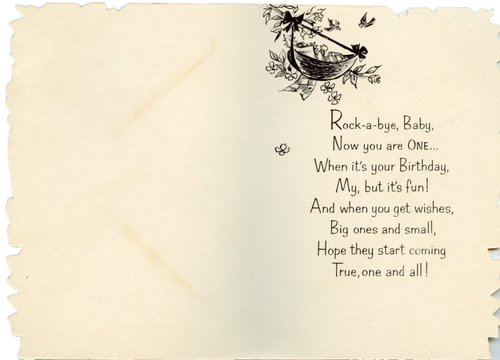 Rock-a-bye, Baby,
Now you are ONE...
When it's your Birthday,
My, but it's fun!
And when you get wishes,
Big ones and small,
Hope they start coming
True, one and all!